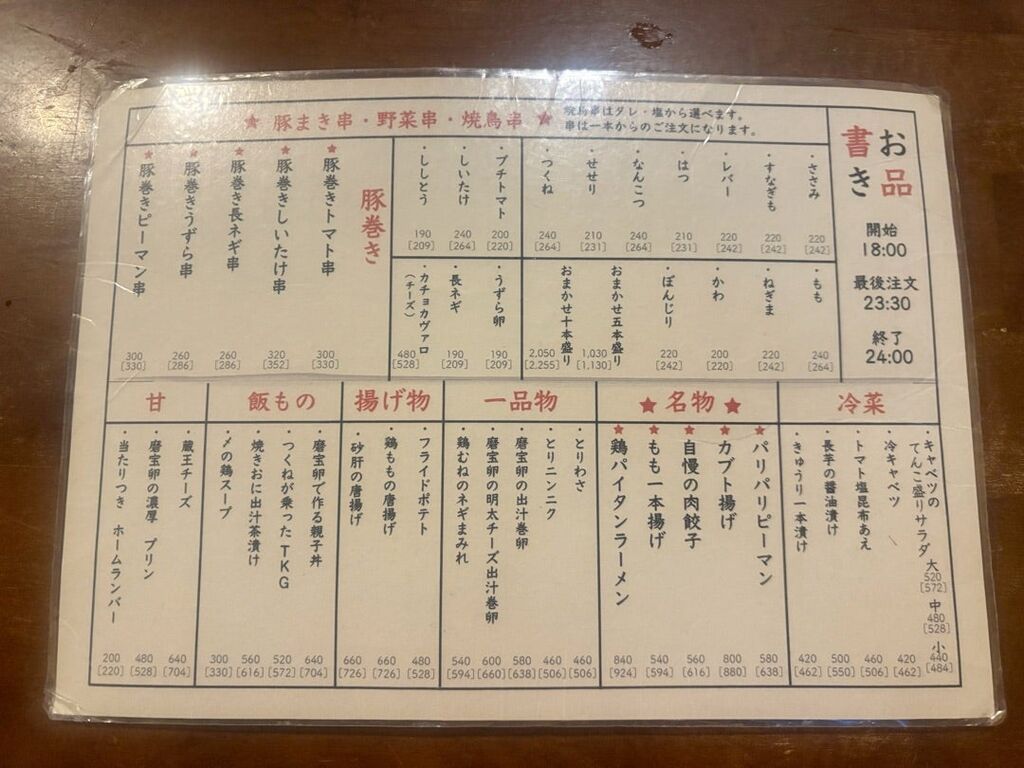 お品書き
開始
18:00
最後注文
23:30
終了
24:00
★ 豚まき串・野菜串・焼鳥串 ★
焼鳥串はタレ・塩から選べます。
串は一本からのご注文になります。
・ささみ 220 [242]
・すなぎも 220 [242]
・レバー 220 [242]
・はつ 210 [231]
・なんこつ 240 [264]
・せせり 210 [231]
・つくね 240 [264]
・もも 240 [264]
・ねぎま 220 [242]
・かわ 200 [220]
・ぼんじり 220 [242]
おまかせ五本盛り 1,030 [1,130]
おまかせ十本盛り 2,050 [2,255]
・プチトマト 200 [220]
・しいたけ 240 [264]
・ししとう 190 [209]
・うずら卵 190 [209]
・長ネギ 190 [209]
・カチョカヴァロ(チーズ) 480 [528]
豚巻き
★豚巻きトマト串 300 [330]
★豚巻きしいたけ串 320 [352]
★豚巻き長ネギ串 260 [286]
★豚巻きうずら串 260 [286]
★豚巻きピーマン串 300 [330]
冷菜
・キャベツの
てんこ盛りサラダ 大 520 [572] 中 480 [528] 小 440 [484]
・冷キャベツ 420 [462]
・トマト塩昆布あえ 460 [506]
・長芋の醤油漬け 500 [550]
・きゅうり一本漬け 420 [462]
★ 名物 ★
★パリパリピーマン 580 [638]
★カブト揚げ 800 [880]
★自慢の肉餃子 560 [616]
★もも一本揚げ 540 [594]
★鶏パイタンラーメン 840 [924]
一品物
・とりわさ 460 [506]
・とりニンニク 460 [506]
・磨宝卵の出汁巻卵 580 [638]
・磨宝卵の明太チーズ出汁巻卵 600 [660]
・鶏むねのネギまみれ 540 [594]
揚げ物
・フライドポテト 480 [528]
・鶏ももの唐揚げ 660 [726]
・砂肝の唐揚げ 660 [726]
飯もの
・磨宝卵で作る親子丼 640 [704]
・つくねが乗ったTKG 520 [572]
・焼きおに出汁茶漬け 560 [616]
・〆の鶏スープ 300 [330]
甘
・蔵王チーズ 640 [704]
・磨宝卵の濃厚 プリン 480 [528]
・当たりつき ホームランバー 200 [220]